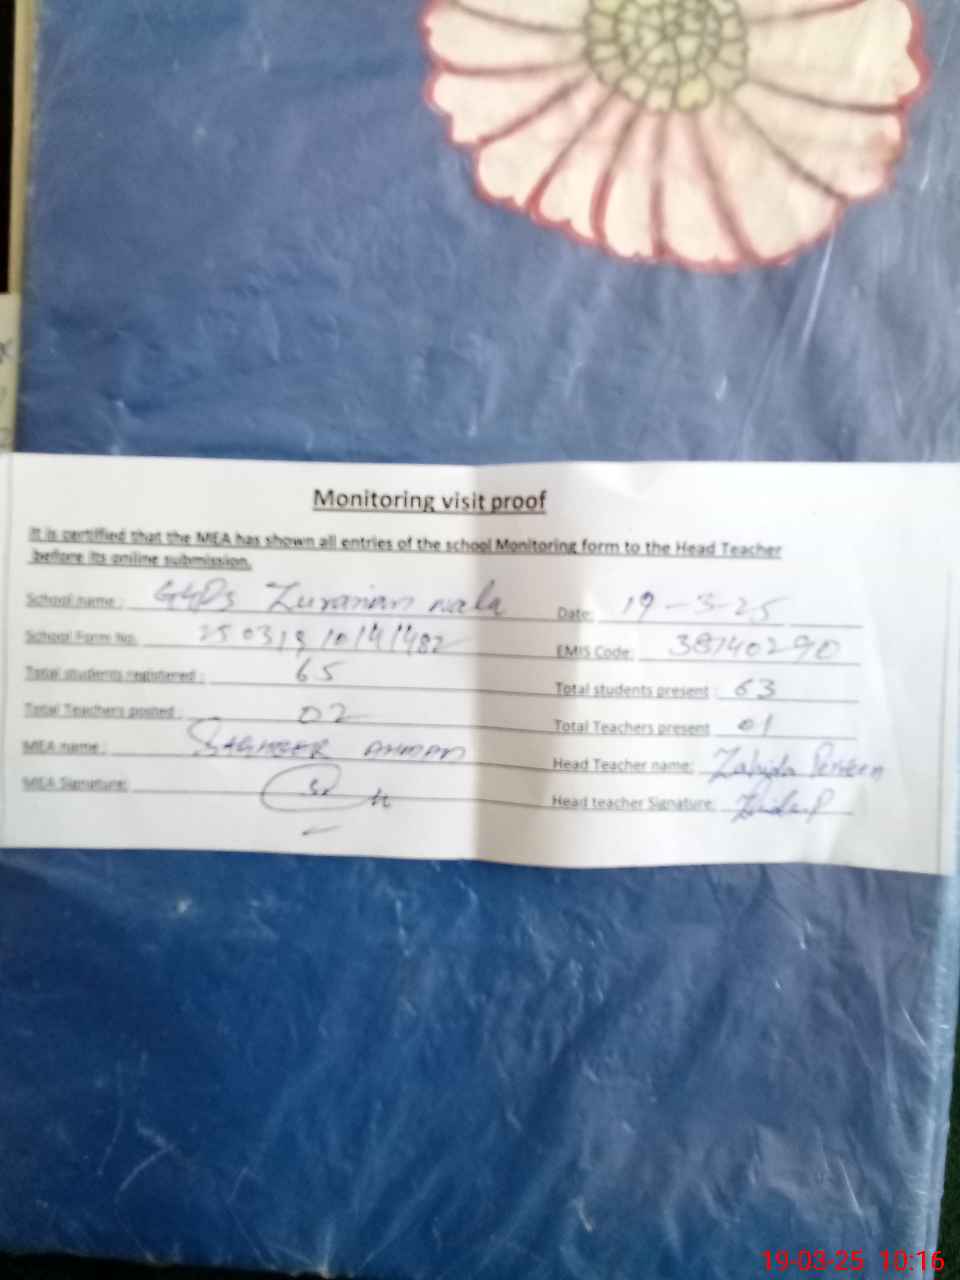 Monitoring visit proof
It is certified that the MEA has shown all entries of the school Monitoring form to the Head Teacher
before its online submission.
School name : Zuranian wala Date: 19-3-25
School Form No. EMIS Code: 38740290
Total students registered : 65 Total students present : 63
Total Teachers posted : 02 Total Teachers present 01
MEA name : SAGHEER AHMAD Head Teacher name: Zahida Perveen
MEA Signature: Head teacher Signature:
19-03-25 10:16